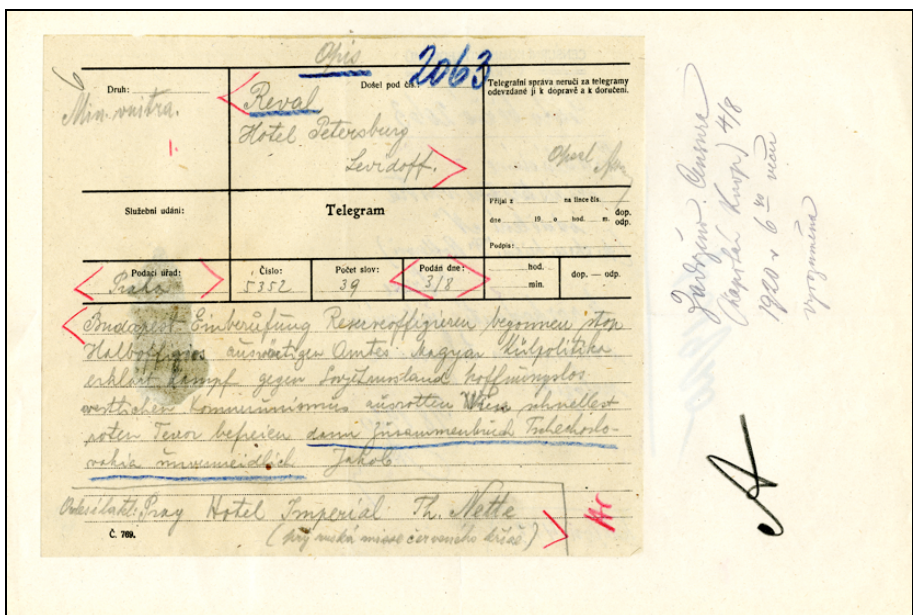 Opis
2063
Druh:
Min. vnitra.
1.
Reval
Hotel Petersburg
Levidoff.
Došel pod čís.:
Telegrafní správa neručí za telegramy
odevzdané jí k dopravě a k doručení.
Služební udání:
Telegram
Přijal z na lince čís.
dne 19 o hod. m. dop. odp.
Podpis:
Podací úřad:
Praha
Číslo:
5352
Počet slov:
39
Podán dne:
3/8
hod.
min.
dop. — odp.
Budapest Einberufung Reserveoffizieren begonnen stop
Halboffizios auswärtigen Amtes Magyar Külpolitika
erklärt Kampf gegen Sovjetrussland hoffnungslos
westlichen Kommunismus ausrotten Wien schnellest
roten Terror befreien dann Zusammenbruch Tschechoslo-
vakia unvermeidlich Jakob
Odesílatel: Prag Hotel Imperial Th. Nette
(prý ruská misse červeného kříže)
Č. 769.
Zadrženo. Censura
(kapitán Knop) 4/8
1920 v 6 večer
vyrozuměna